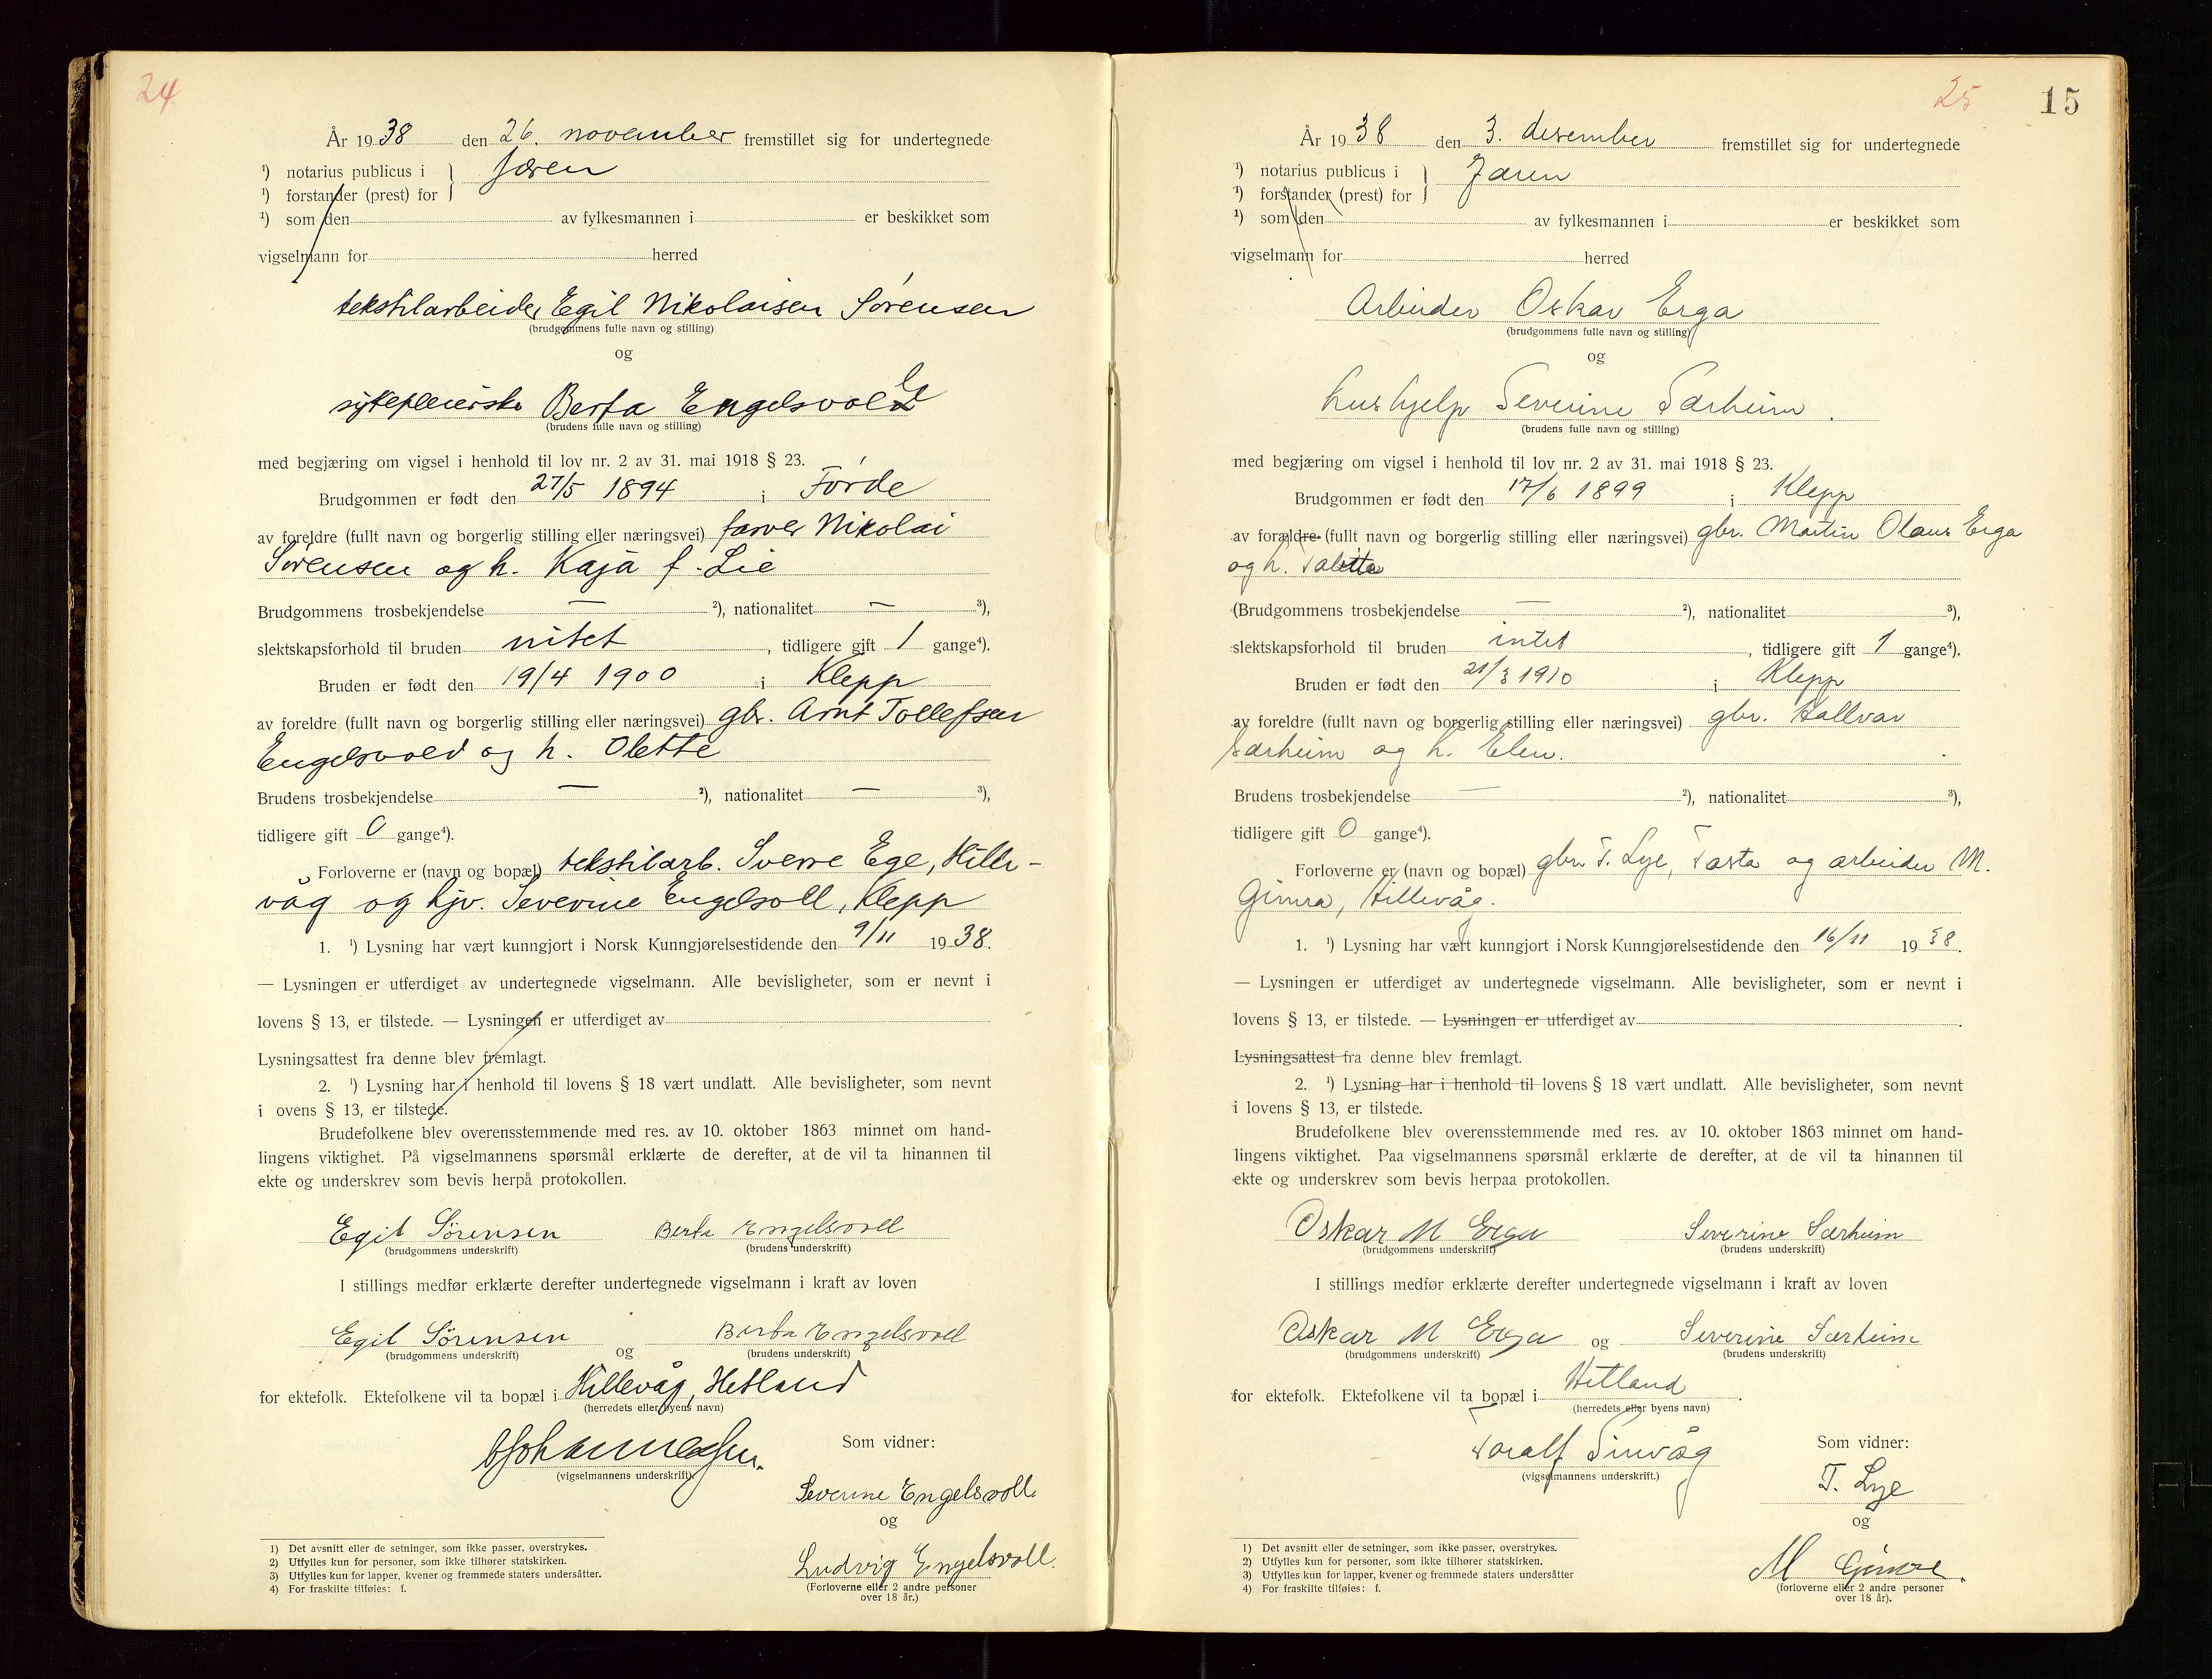 24
År 1938 den 26. november fremstillet sig for undertegnede
¹) notarius publicus i } Jæren
¹) forstander (prest) for
¹) som den av fylkesmannen i er beskikket som
vigselmann for herred
tekstilarbeider Egil Nikolaisen Sørensen
(brudgommens fulle navn og stilling)
og
sykepleierske Berta Engelsvoll
(brudens fulle navn og stilling)
med begjæring om vigsel i henhold til lov nr. 2 av 31. mai 1918 § 23.
Brudgommen er født den 27/5 1894 i Førde
av foreldre (fullt navn og borgerlig stilling eller næringsvei) farver Nikolai
Sørensen og h. Kaja f. Lie
Brudgommens trosbekjendelse — ²), nationalitet — ³),
slektskapsforhold til bruden intet , tidligere gift 1 gange⁴).
Bruden er født den 19/4 1900 i Klepp
av foreldre (fullt navn og borgerlig stilling eller næringsvei) gbr. Arnt Tollefsen
Engelsvold og h. Olette
Brudens trosbekjendelse — ²), nationalitet — ³),
tidligere gift 0 gange⁴).
Forloverne er (navn og bopæl) tekstilarb. Sverre Ege, Hille-
våg og hjv. Severine Engelsvoll, Klepp
1. ¹) Lysning har vært kunngjort i Norsk Kunngjørelsestidende den 9/11 1938.
— Lysningen er utferdiget av undertegnede vigselmann. Alle bevisligheter, som er nevnt i
lovens § 13, er tilstede. — Lysningen er utferdiget av
Lysningsattest fra denne blev fremlagt.
2. ¹) Lysning har i henhold til lovens § 18 vært undlatt. Alle bevisligheter, som nevnt
i ovens § 13, er tilstede.
Brudefolkene blev overensstemmende med res. av 10. oktober 1863 minnet om hand-
lingens viktighet. På vigselmannens spørsmål erklærte de derefter, at de vil ta hinannen til
ekte og underskrev som bevis herpå protokollen.
Egil Sørensen Berta Engelsvoll
(brudgommens underskrift) (brudens underskrift)
I stillings medfør erklærte derefter undertegnede vigselmann i kraft av loven
Egil Sørensen og Berta Engelsvoll
(brudgommens underskrift) (brudens underskrift)
for ektefolk. Ektefolkene vil ta bopæl i Hillevåg, Hetland
(herredets eller byens navn)
(vigselmannens underskrift).
Som vidner:
Severine Engelsvoll
og
Ludvig Engelsvoll.
(Forloverne eller 2 andre personer
over 18 år.)
1) Det avsnitt eller de setninger, som ikke passer, overstrykes.
2) Utfylles kun for personer, som ikke tilhører statskirken.
3) Utfylles kun for lapper, kvener og fremmede staters undersåtter.
4) For fraskilte tilføies: f.
25 15
År 1938 den 3. desember fremstillet sig for undertegnede
¹) notarius publicus i } Jæren
¹) forstander (prest) for
¹) som den av fylkesmannen i er beskikket som
vigselmann for herred
Arbeider Oskar Erga
(brudgommens fulle navn og stilling)
og
hushjelp Severine Særheim.
(brudens fulle navn og stilling)
med begjæring om vigsel i henhold til lov nr. 2 av 31. mai 1918 § 23.
Brudgommen er født den 17/6 1899 i Klepp
av forældre (fullt navn og borgerlig stilling eller næringsvei) gbr. Martin Olaus Erga
og h. Talette
(Brudgommens trosbekjendelse — ²), nationalitet ³),
slektskapsforhold til bruden intet , tidligere gift 1 gange⁴).
Bruden er født den 21/3 1910 i Klepp
av foreldre (fullt navn og borgerlig stilling eller næringsvei) gbr. Hallvar
Særheim og h. Elen.
Brudens trosbekjendelse — ²), nationalitet ³),
tidligere gift 0 gange⁴).
Forloverne er (navn og bopæl) gbr. T. Lye, Tasta og arbeider M.
Gimra, Hillevåg.
1. ¹) Lysning har vært kunngjort i Norsk Kunngjørelsestidende den 16/11 1938.
— Lysningen er utferdiget av undertegnede vigselmann. Alle bevisligheter, som er nevnt i
lovens § 13, er tilstede. — Lysningen er utferdiget av .
Lysningsattest fra denne blev fremlagt.
2. ¹) Lysning har i henhold til lovens § 18 vært undlatt. Alle bevisligheter, som nevnt
i lovens § 13, er tilstede.
Brudefolkene blev overensstemmende med res. av 10. oktober 1863 minnet om hand-
lingens viktighet. Paa vigselmannens spørsmål erklærte de derefter, at de vil ta hinannen til
ekte og underskrev som bevis herpaa protokollen.
Oskar M Erga Severine Særheim
(brudgommens underskrift) (brudens underskrift)
I stillings medfør erklærte derefter undertegnede vigselmann i kraft av loven
Oskar M Erga og Severine Særheim
(brudgommens underskrift) (brudens underskrift)
for ektefolk. Ektefolkene vil ta bopæl i Hetland .
(herredets eller byens navn)
Toralf
(vigselmannens underskrift.)
Som vidner:
T. Lye
og
M Gimre.
(forloverne eller 2 andre personer
over 18 år).
1) Det avsnitt eller de setninger, som ikke passer, overstrykes.
2) Utfylles kun for personer, som ikke tilhører statskirken.
3) Utfylles kun for lapper, kvener og fremmede staters undersåtter
4) For fraskilte tilføies: f.